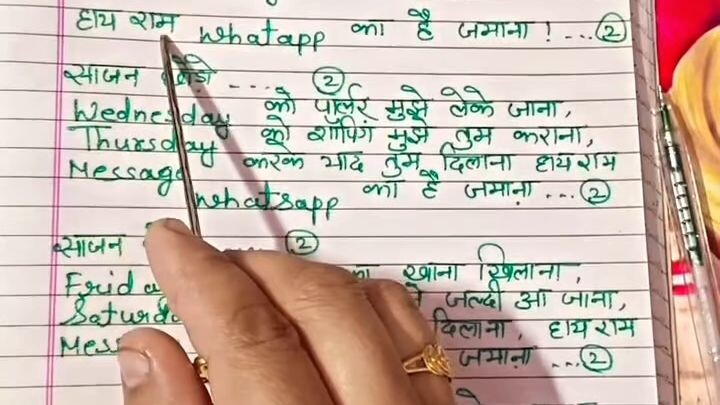 हाय राम whatapp का है जमाना ! ... 2
साजन ... 2
Wednesday को पार्लर मुझे लेके जाना,
Thursday को शॉपिंग मुझे तुम कराना,
Message करके याद तुम दिलाना हाय राम
whatsapp का है जमाना ... 2
साजन ... 2
खाना खिलाना,
जल्दी आ जाना,
दिलाना, हाय राम
जमाना ... 2